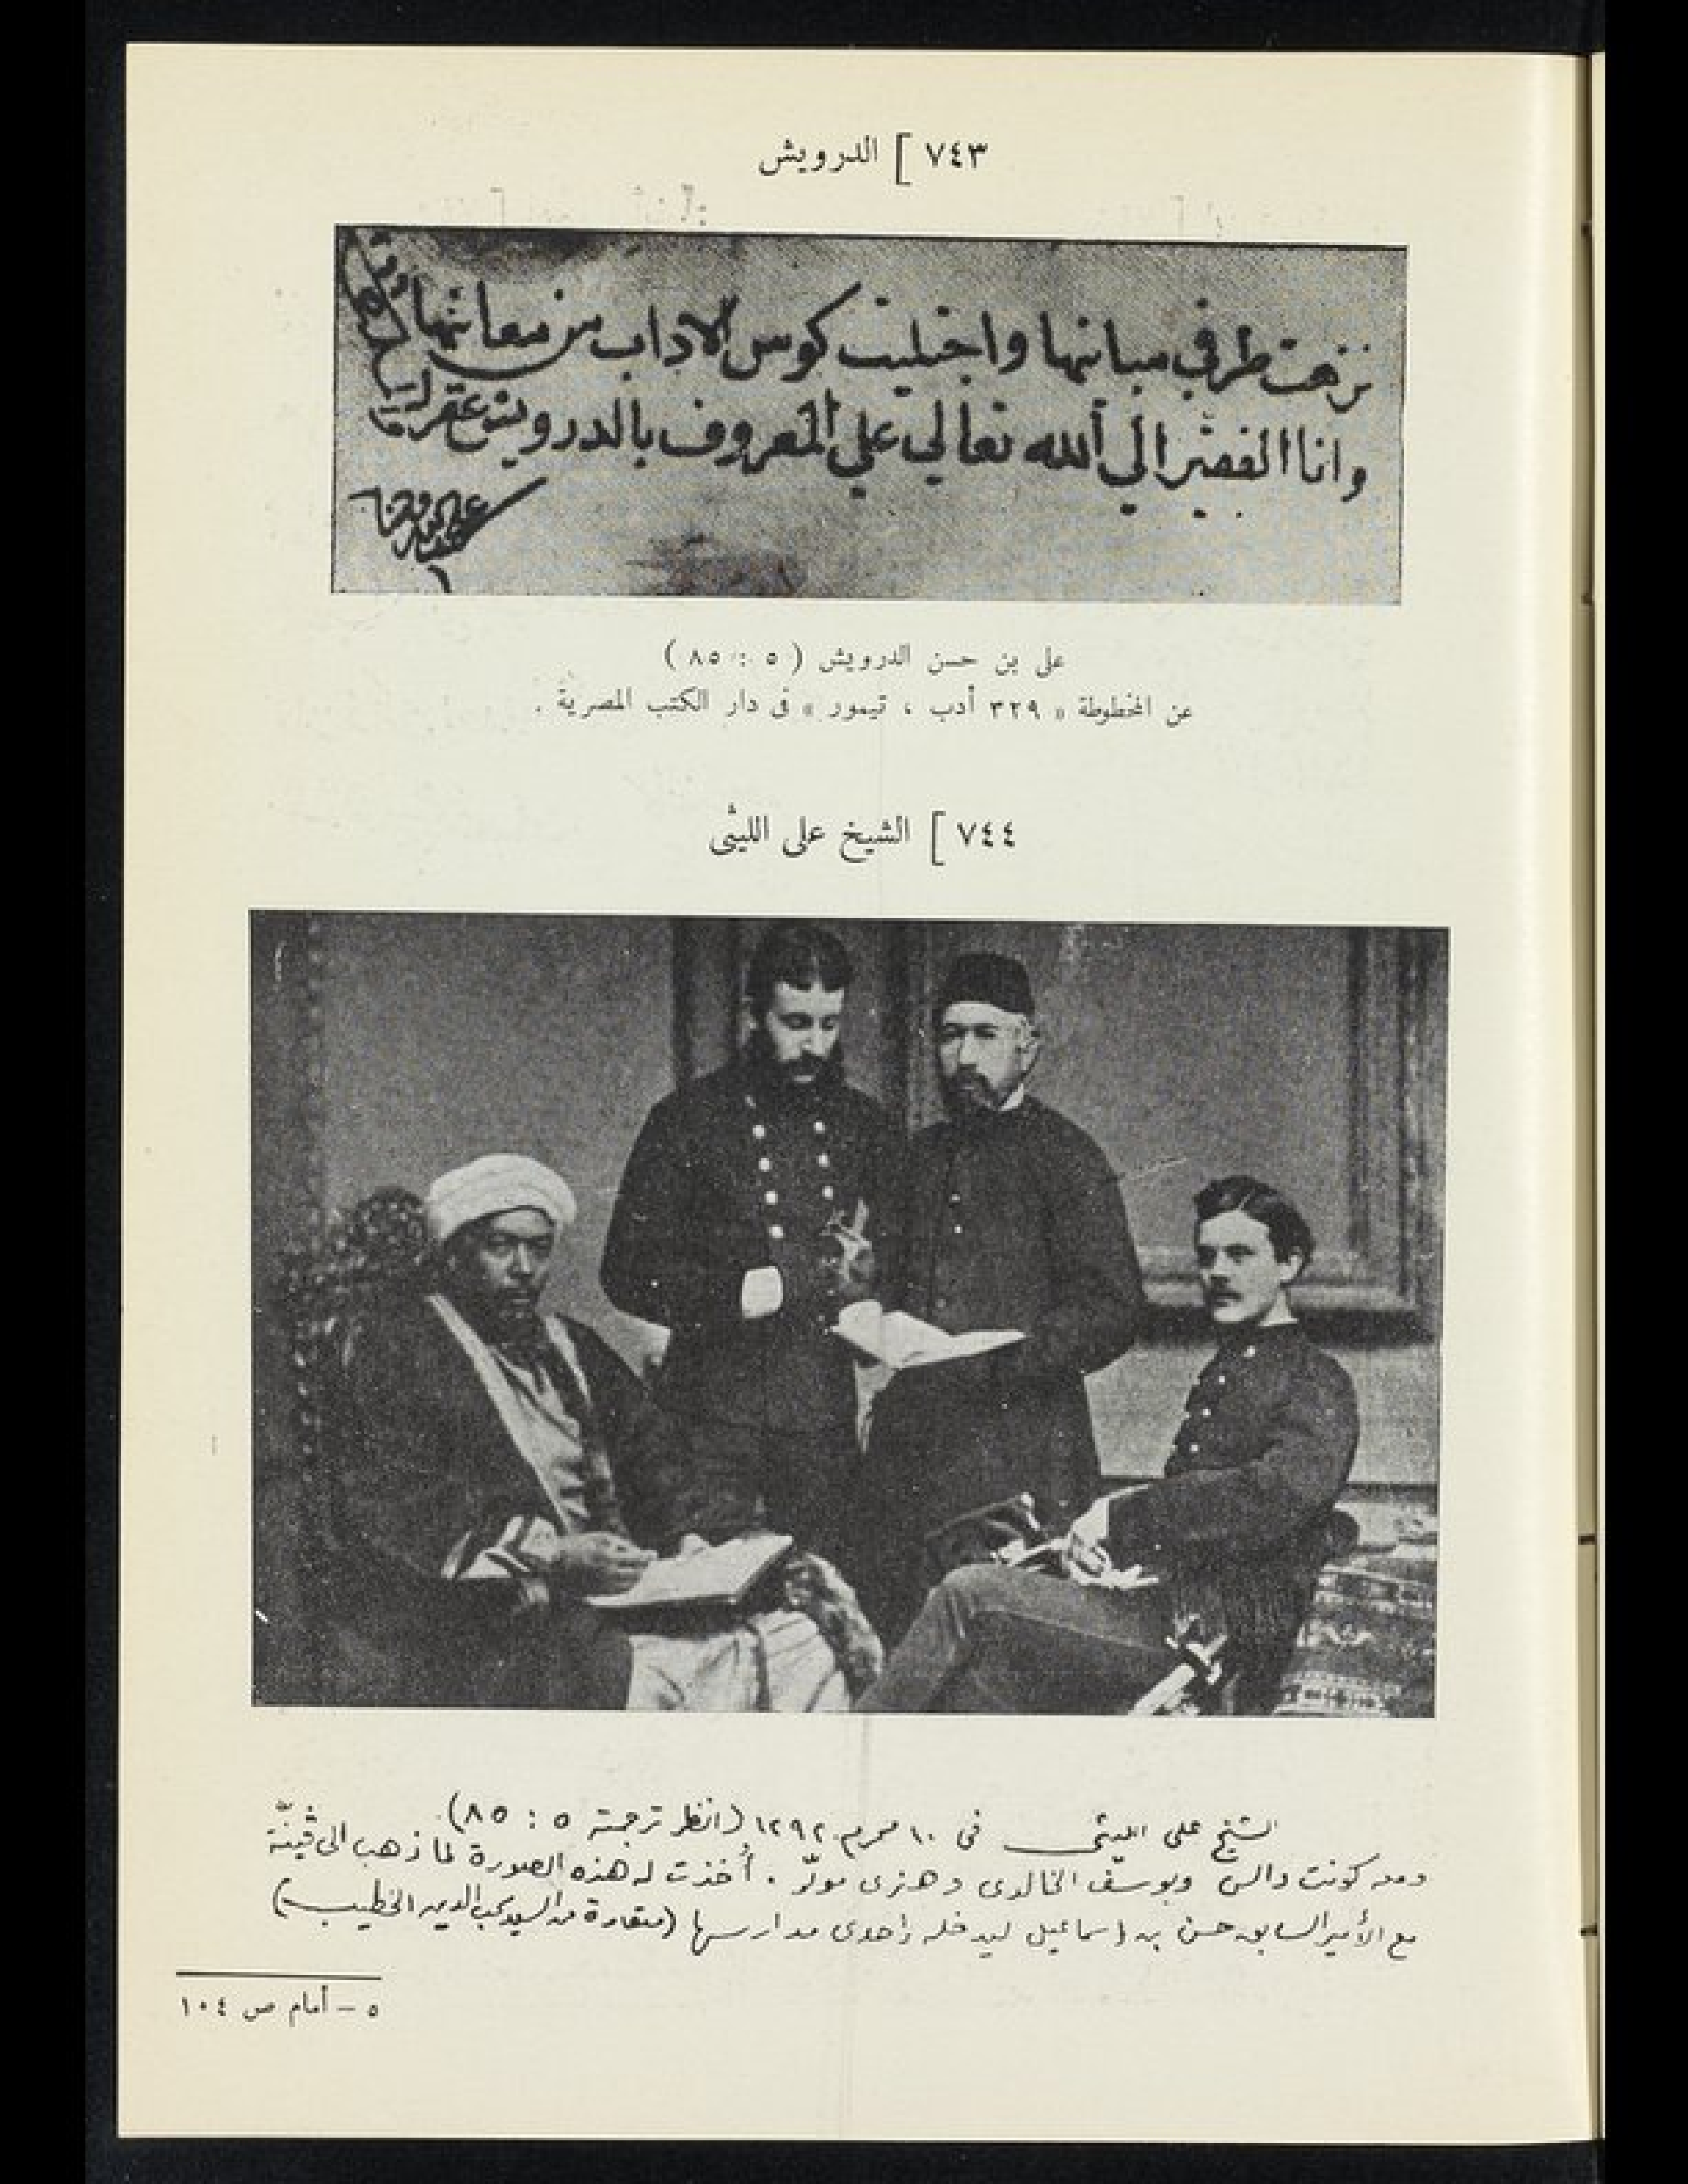 ٧٤٣ ] الدرويش
نزهت طرفي في مبانيها واجتليت كوس الاداب من معانيها
وانا الفقير الي الله تعالي علي المعروف بالدرويش غفر له
علي بن حسن الدرويش ( ٥ : ٨٥ )
عن المخطوطة « ٣٢٩ أدب ، تيمور » فى دار الكتب المصرية .
٧٤٤ ] الشيخ على الليثى
الشيخ على الليثى فى ١٠ محرم ١٢٩٢ (انظر ترجمته ٥ : ٨٥)
ومعه كونت والس ويوسف الخالدى وهنرى مولّر . أُخذت له هذه الصورة لما ذهب الى ڤينّة
مع الأمير السابق حسن بن إسماعيل ليدخله إحدى مدارسها (مستعارة من السيد محب الدين الخطيب)
٥ – أمام ص ١٠٤